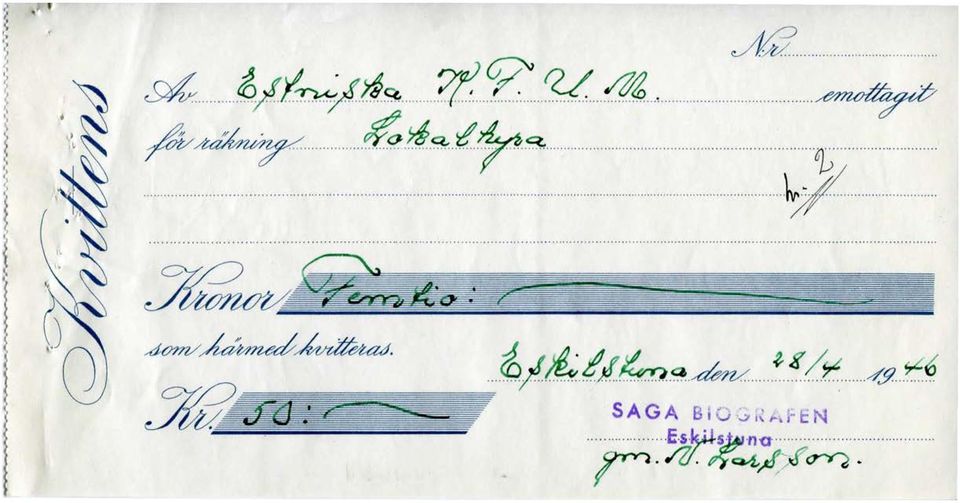 Kvittens
Nr
Av Estniska K.F.U.M. emottagit
för räkning Lokalhyra
nr: 2
Kronor Femtio:
som härmed kvitteras.
Eskilstuna den 28/4 1946
Kr. 50:
SAGA BIOGRAFEN
Eskilstuna
gm. N. Larsson.